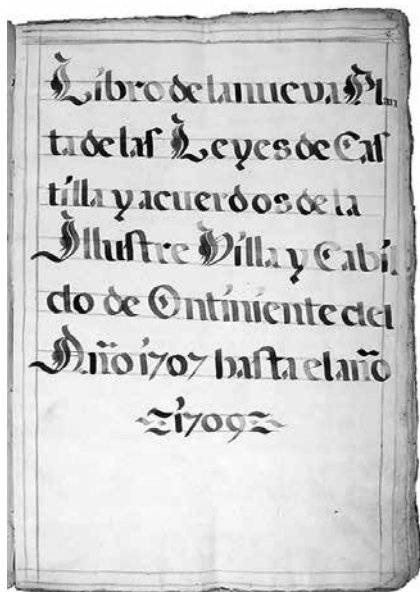 Libro de la nueva Plan
ta de las Leyes de Cas
tilla y acuerdos de la
Illustre Villa y Cabil
do de Ontiniente del
Año 1707 hasta el año
1709